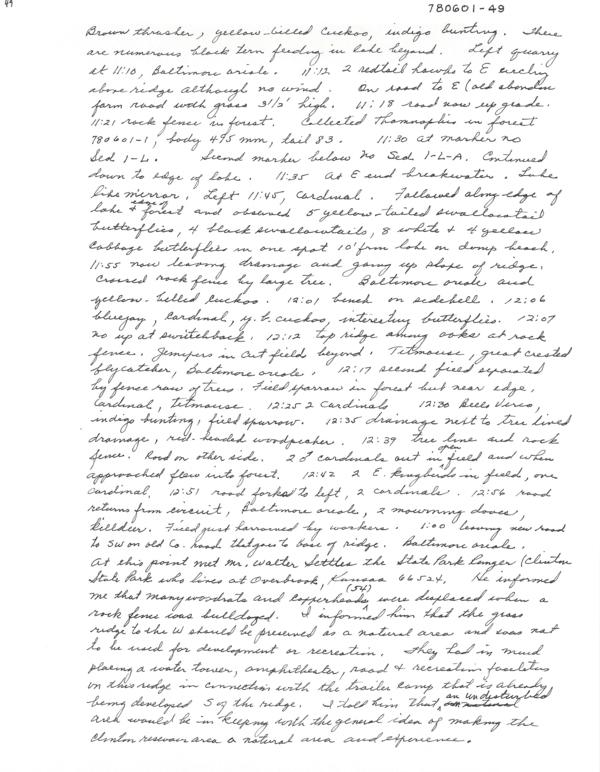 49
780601-49
Brown thrasher, yellow-billed Cuckoo, indigo bunting. There
are numerous black tern feeding in lake beyond. Left quarry
at 11:10, Baltimore oriole. 11:12 2 redtail hawks to E circling
above ridge although no wind. On road to E (old abandon
farm road with grass 3½' high. 11:18 road now up grade.
11:21 rock fence in forest. Collected Thamnophis in forest
780601-1, body 495 mm, tail 83. 11:30 at marker no
Sed 1-L. Second marker below no Sed 1-L-A. Continued
down to edge of lake. 11:35 at E end breakwater. Lake
like mirror. Left 11:45, Cardinal. Followed along edge of
lake & edge of forest and observed 5 yellow-tailed swallowtail
butterflies, 4 black swallowtails, 8 white & 4 yellow
Cabbage butterflies in one spot 10' from lake on damp beach.
11:55 now leaving drainage and going up slope of ridge.
Crossed rock fence by large tree. Baltimore oriole and
yellow-billed Cuckoo. 12:01 bench on sidehill. 12:06
bluejay, Cardinal, y.b. cuckoo, interesting butterflies. 12:07
no up at switchback. 12:12 top ridge among oaks at rock
fence. Junipers in cut field beyond. Titmouse, great crested
flycatcher, Baltimore oriole. 12:17 second field separated
by fence row of trees. Field sparrow in forest but near edge,
Cardinal, titmouse. 12:25 2 Cardinals 12:30 Bells Vireo,
indigo bunting, field sparrow. 12:35 drainage next to tree lined
drainage, red-headed woodpecker. 12:39 tree line and rock
fence. Road on other side. 2 ♂ cardinals out in open field and when
approached flew into forest. 12:42 2 E. Kingbirds in field, one
Cardinal. 12:51 road forks to left, 2 cardinals. 12:56 road
returns from circuit, Baltimore oriole, 2 mourning doves,
Killdeer. Field just harrowed by workers. 1:00 leaving new road
to SW on old Co. road that goes to base of ridge. Baltimore oriole.
At this point met Mr. Walter Settles the State Park Ranger (Clinton
State Park who lives at Overbrook, Kansas 66524. He informed
me that many woodrats and Copperheads (54) were displaced when a
rock fence was bulldozed. I informed him that the grass
ridge to the W should be preserved as a natural area and was not
to be used for development or recreation. They had in mind
placing a water tower, amphitheater, road & recreation facilities
on this ridge in connection with the trailer camp that is already
being developed S of the ridge. I told him that an undisturbed
area would be in keeping with the general idea of making the
Clinton reservoir area a natural area and experience.